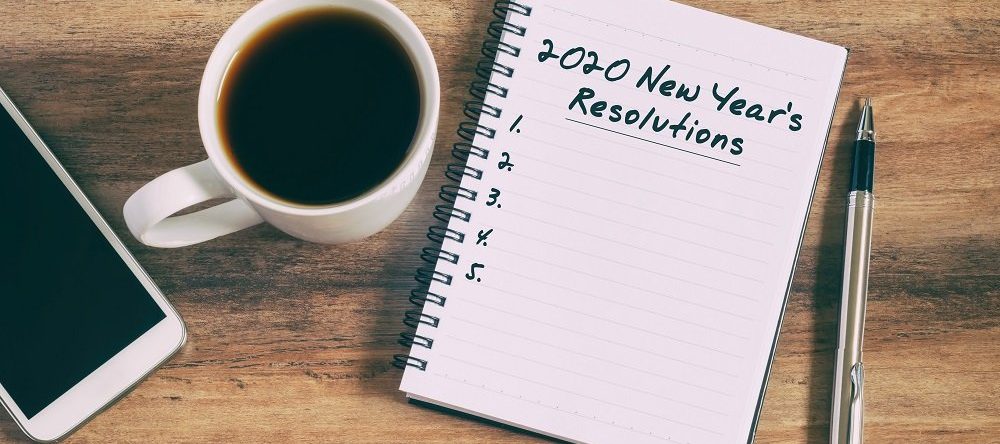 2020 New Year's
Resolutions
1.
2.
3.
4.
5.